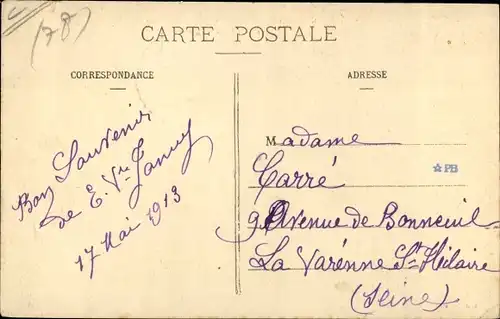 (78)
CARTE POSTALE
CORRESPONDANCE
ADRESSE
Bon Souvenir
de E. Vve
17 Mai 1913
Madame
Carré
PB
9 Avenue de Bonneuil
La Varenne St Hilaire
(Seine)